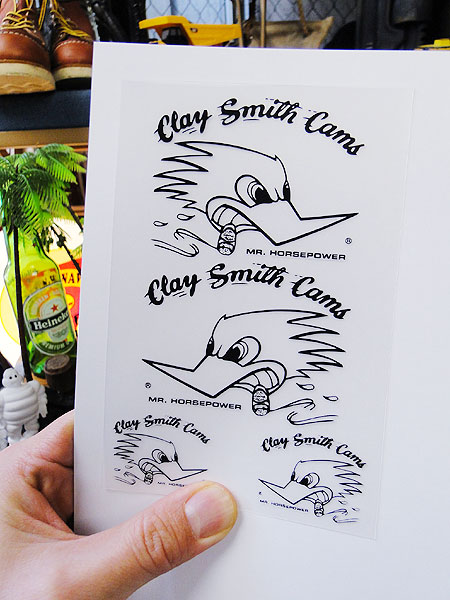 Clay Smith Cams
®
MR. HORSEPOWER
Clay Smith Cams
®
MR. HORSEPOWER
Clay Smith Cams
MR. HORSEPOWER
Clay Smith Cams
MR. HORSEPOWER
Heineken